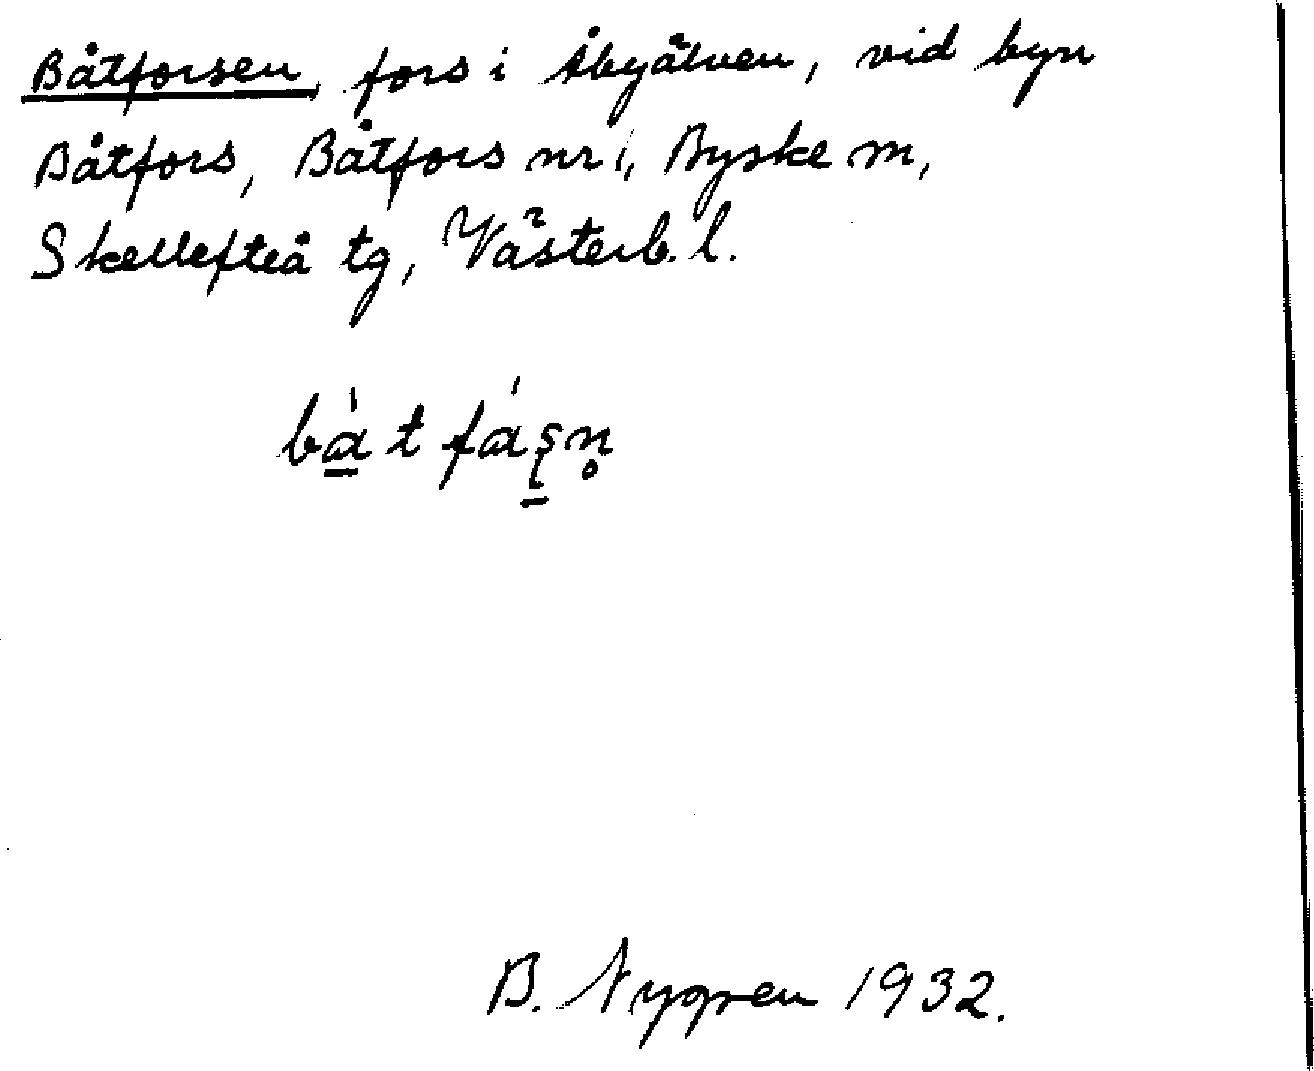 Båtforsen, fors i Åbyälven, vid byn
Båtfors, Båtfors nr 1, Byske sn,
Skellefteå tg, Västerb. l.
bàt fáʂn̥
B. Nygren 1932.